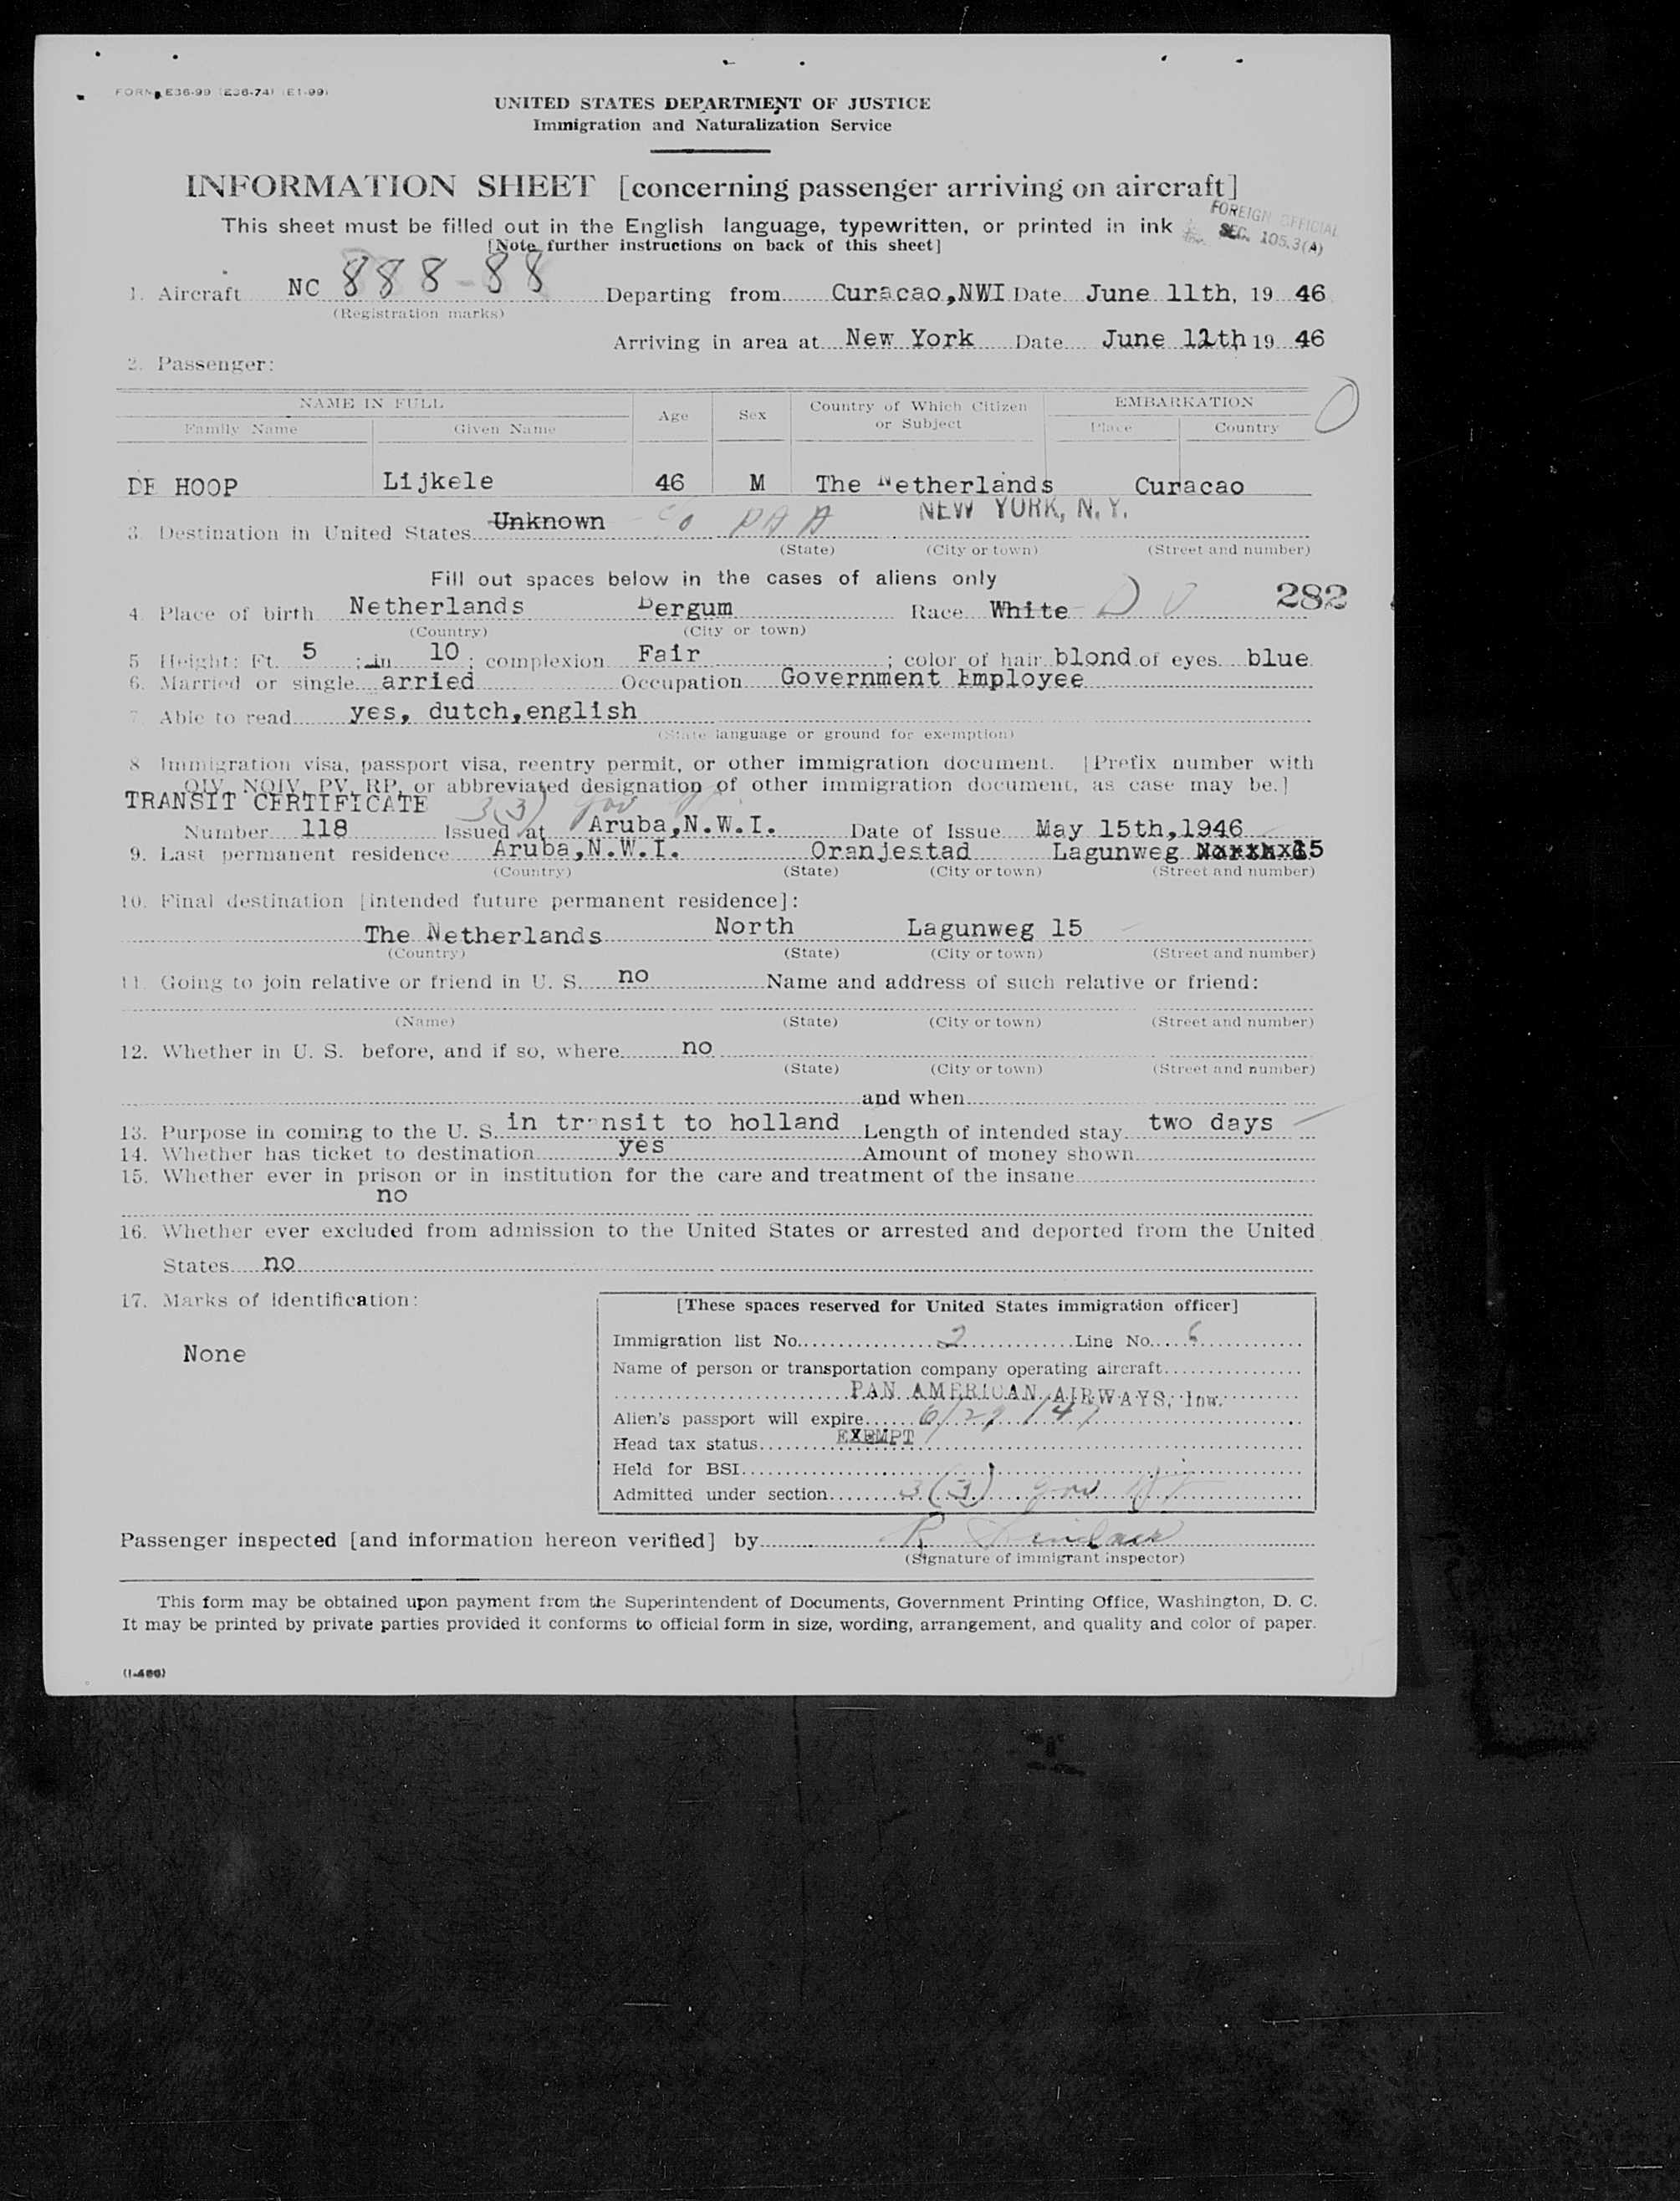 FORM E36-99 (E36-74) (E1-99)
UNITED STATES DEPARTMENT OF JUSTICE
Immigration and Naturalization Service
INFORMATION SHEET [concerning passenger arriving on aircraft]
FOREIGN OFFICIAL
This sheet must be filled out in the English language, typewritten, or printed in ink
SEC. 105.3(A)
[Note further instructions on back of this sheet]
1. Aircraft NC 888-88 Departing from Curacao,NWI Date June 11th, 19 46
(Registration marks)
Arriving in area at New York Date June 11th 19 46
2. Passenger:
NAME IN FULL Age Sex Country of Which Citizen or Subject EMBARKATION
Family Name Given Name Place Country
DE HOOP Lijkele 46 M The Netherlands Curacao
NEW YORK, N.Y.
3. Destination in United States Unknown c/o PAA
(State) (City or town) (Street and number)
Fill out spaces below in the cases of aliens only
282
4. Place of birth Netherlands Bergum Race White D
(Country) (City or town)
5 Height: Ft. 5 ; in 10 ; complexion Fair ; color of hair blond of eyes blue
6. Married or single arried Occupation Government Employee
7 Able to read yes, dutch,english
(State language or ground for exemption)
8 Immigration visa, passport visa, reentry permit, or other immigration document. [Prefix number with
QIV, NQIV, PV, RP, or abbreviated designation of other immigration document, as case may be.]
TRANSIT CERTIFICATE 3(3) gov
Number 118 Issued at Aruba,N.W.I. Date of Issue May 15th,1946
9. Last permanent residence Aruba,N.W.I. Oranjestad Lagunweg 15
(Country) (State) (City or town) (Street and number)
10. Final destination [intended future permanent residence]:
The Netherlands North Lagunweg 15
(Country) (State) (City or town) (Street and number)
11. Going to join relative or friend in U. S. no Name and address of such relative or friend:
(Name) (State) (City or town) (Street and number)
12. Whether in U. S. before, and if so, where no
(State) (City or town) (Street and number)
and when
13. Purpose in coming to the U. S. in transit to holland Length of intended stay two days
14. Whether has ticket to destination yes Amount of money shown
15. Whether ever in prison or in institution for the care and treatment of the insane
no
16. Whether ever excluded from admission to the United States or arrested and deported from the United
States no
17. Marks of identification:
None
[These spaces reserved for United States immigration officer]
Immigration list No. 2 Line No. 6
Name of person or transportation company operating aircraft
PAN AMERICAN AIRWAYS, Inc.
Alien's passport will expire 6/29/47
Head tax status EXEMPT
Held for BSI
Admitted under section 3(3) gov
Passenger inspected [and information hereon verified] by R
(Signature of immigrant inspector)
This form may be obtained upon payment from the Superintendent of Documents, Government Printing Office, Washington, D. C.
It may be printed by private parties provided it conforms to official form in size, wording, arrangement, and quality and color of paper.
(I-466)